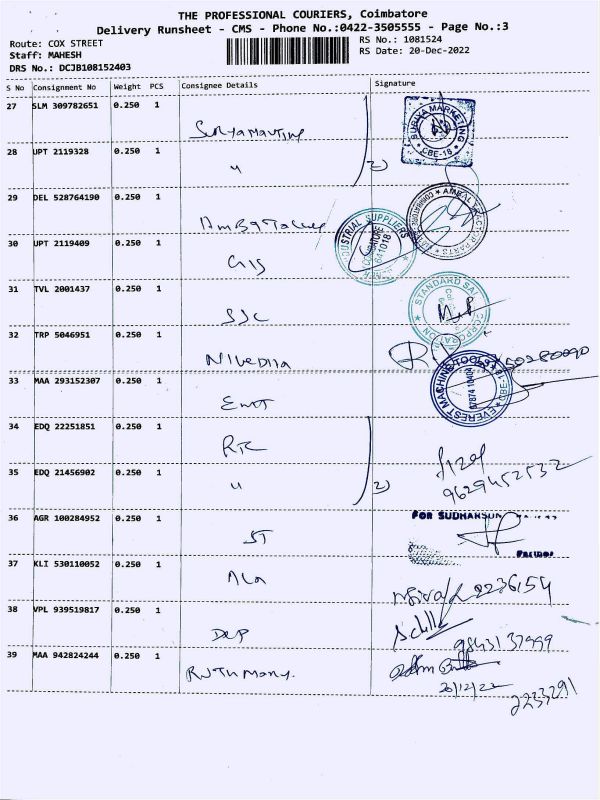 THE PROFESSIONAL COURIERS, Coimbatore
Delivery Runsheet - CMS - Phone No.:0422-3505555 - Page No.:3
Route: COX STREET
RS No.: 1081524
Staff: MAHESH
RS Date: 20-Dec-2022
DRS No.: DCJB108152403
S No Consignment No Weight PCS Consignee Details Signature
27 SLM 309782651 0.250 1
SURYA MARKETING CBE-18
28 UPT 2119328 0.250 1 2)
29 DEL 528764190 0.250 1
30 UPT 2119409 0.250 1 GIS
INDUSTRIAL SUPPLIERS COIMBATORE 641018
31 TVL 2001437 0.250 1 SSC
32 TRP 5046951 0.250 1 Nivedita
33 MAA 293152307 0.250 1 EMT
EVEREST MACHINE TOOLS CBE-18
34 EDQ 22251851 0.250 1 RTC
35 EDQ 21456902 0.250 1 2) 9629452532
36 AGR 100284952 0.250 1 ST
FOR SUDHARSUN
37 KLI 530110052 0.250 1 ALA 2236154
38 VPL 939519817 0.250 1 DLP
9843137999
39 MAA 942824244 0.250 1
20/12/22 2233291